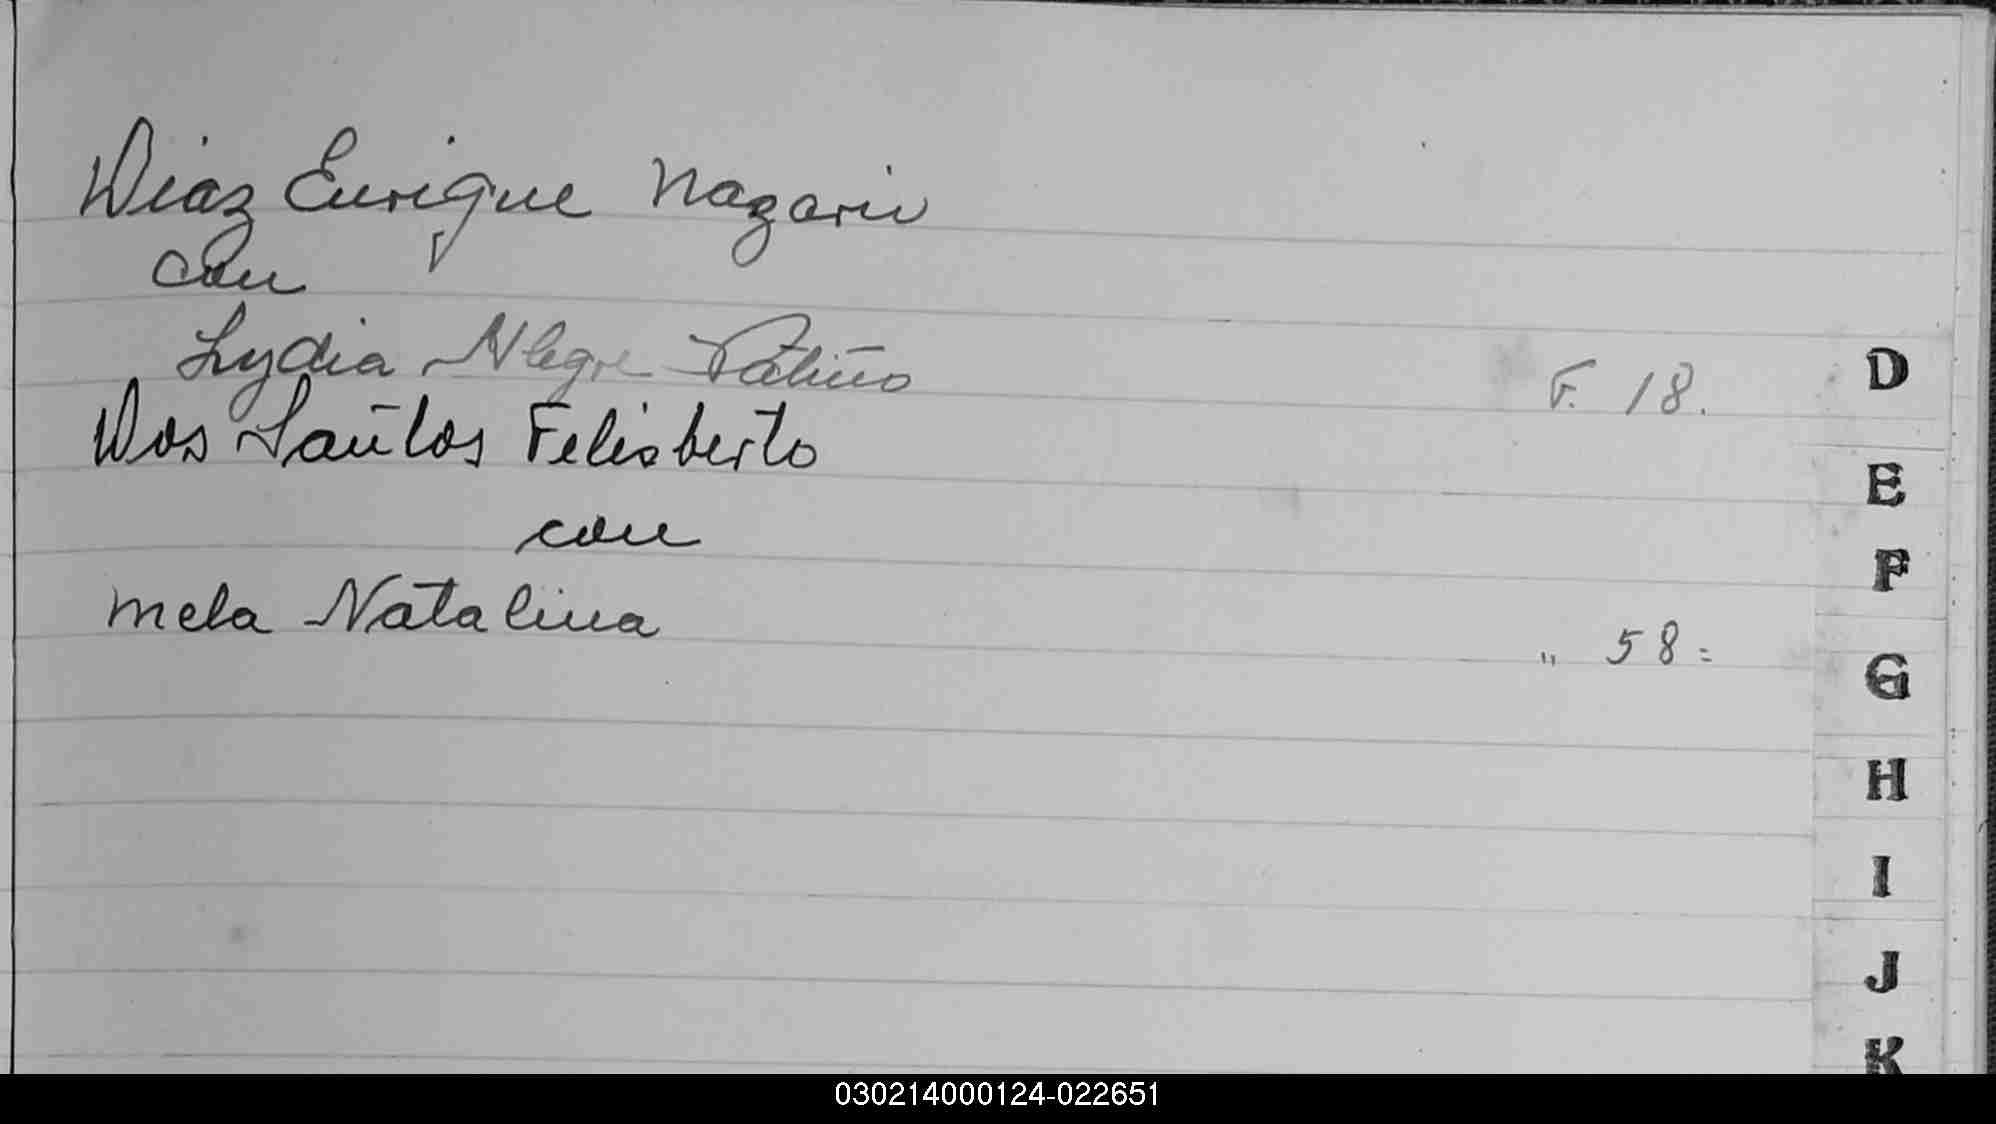 Diaz Enrique Nazario
con
Lydia Alegre Patiño
F. 18.
Dos Santos Felisberto
con
Mela Natalina
" 58=
D
E
F
G
H
I
J
K
030214000124-022651